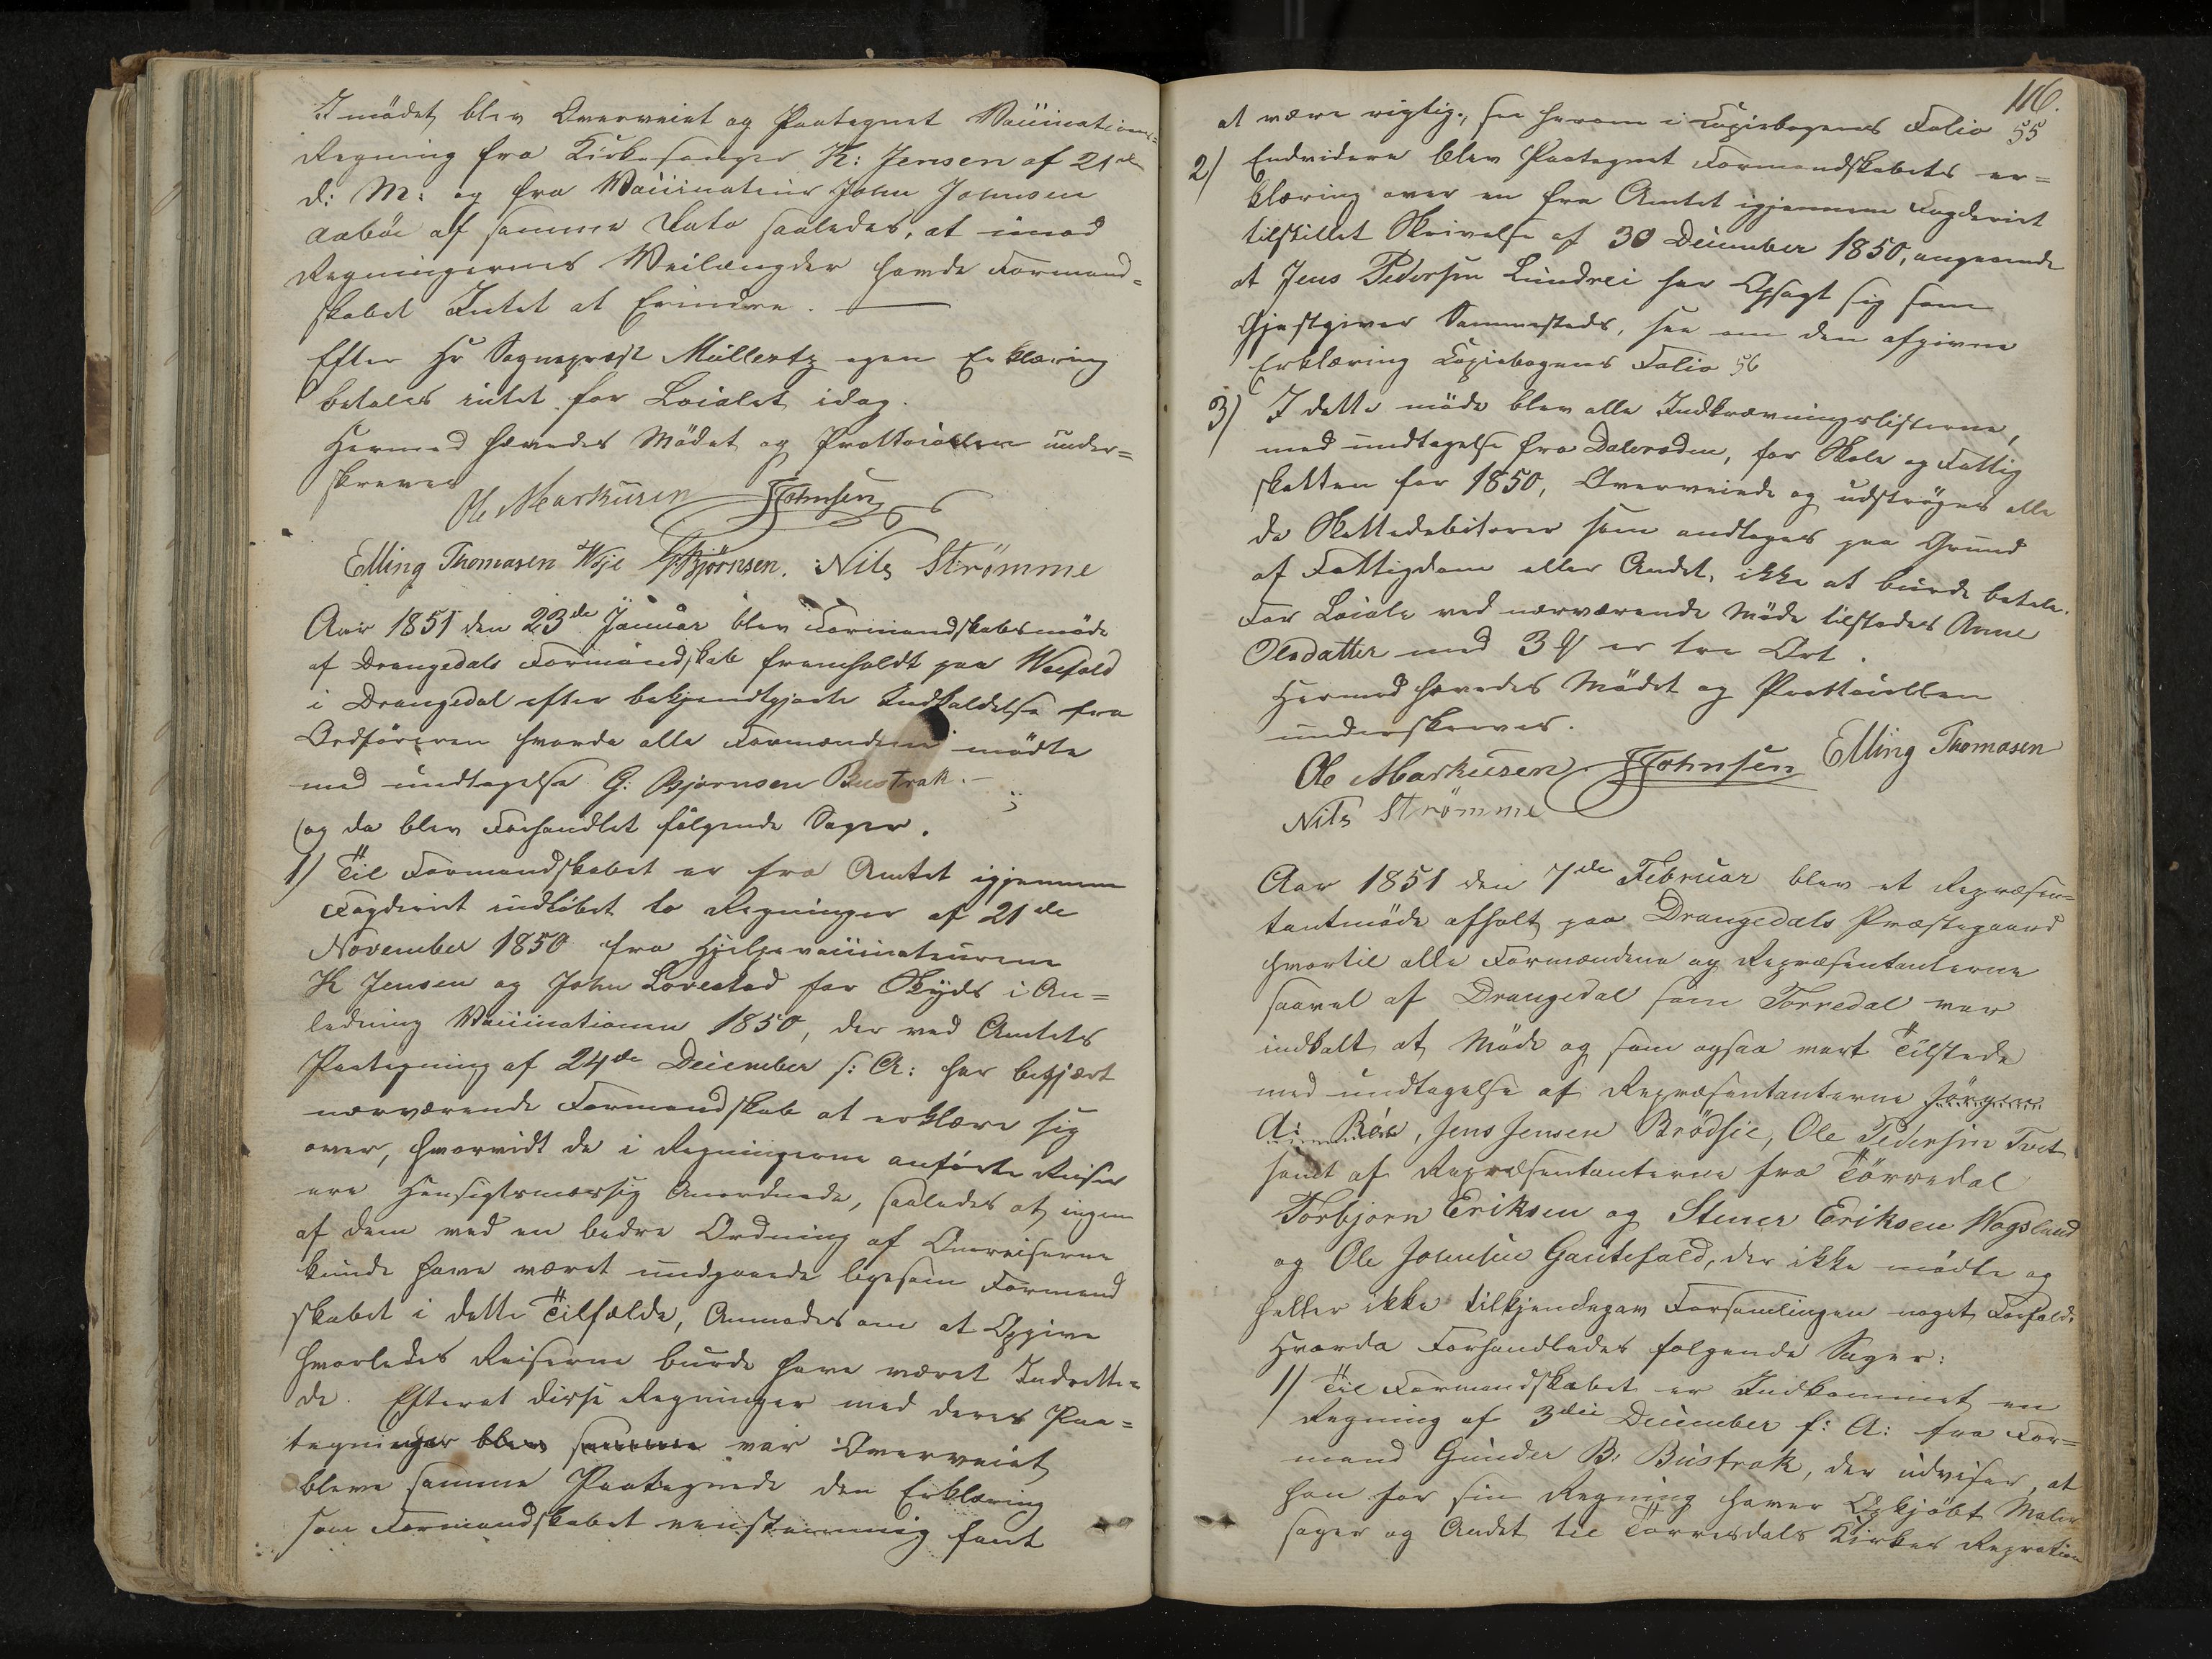 I mødet blev Overveiet og Paategnet Vaccinations=
Regning fra Kirkesanger K: Jensen af 21de
d: M: og fra Vaccinateur John Johnsen
Aabøe af samme Dato saaledes, at imod
Regningernes Veilængder havde Formand=
skabet Intet at Erindre.
Efter Hr Sognepræst Müllertz egen Erklæring
betales intet for Localet idag.
Hermed hævedes Mødet og Prottocollen under=
skreves
Ole Markusen JJohnsen
Elling Thomasen Woje GBjørnsen. Nils Strømme
Aar 1851 den 23de Januar blev Formandskabsmøde
af Drangedals Formandskab fremholdt paa Wefald
i Drangedal efter bekjendtgjorte Indkaldelse fra
Ordføreren hvorda alle Formændene mødte
med undtagelse G. Bjørnsen Bustrak.-
og da blev Forhandlet følgende Sager.
1) Til Formandskabet er fra Amtet igjennem
Fogderiet indløbet to Regninger af 21de
November 1850 fra Hjelpevaccinateurene
K Jensen og John Lovestad for Skyds i An=
ledning Vaccinationen 1850, der ved Amtets
Paategning af 24de December s: A: har begjært
nærværende Formandskab at erklære sig
over, hvorvidt de i Regningerne anførte Reiser
ere Hensigtsmæssig Anordnede, saaledes at ingen
af dem ved en bedre Ordning af Omreiserne
kunde have været undgaaede ligesom Formand
skabet i dette Tilfælde, Anmodes om at Opgive
hvorledes Reiserne burde have været Indrette=
de. Efterat disse Regninger med deres Paa=
tegninger blev samme var Overveiet
bleve samme Paategnede den Erklæring
som Formandskabet eenstemmig fant
116.
at være rigtig, see herom i Copiebogens Folio 55
2) Endvidere blev Paategnet Formandskabets er=
klæring over en fra Amtet igjennem Fogderiet
tilstillet Skrivelse af 30 December 1850, angaaende
at Jens Pedersen Lundrei har Opsagt sig som
Gjestgiver Sammesteds, see om den afgivne
Erklæring Copiebogens Folio 56
3) I dette møde blev alle Indkrævningslisterne,
med undtagelse fra Daleroden, for Skole og Fattig
skatten for 1850, Overveiede og udstrøges alle
de Skattedebitorer som andtages paa Grund
af Fattigdom eller Andet, ikke at burde betale.
For Locale ved nærværende Møde tilstodes Anne
Olsdatter med 3 er tre Ort.
Hermed hævedes Mødet og Prottocollen
underskreves.
Ole Markusen JJohnsen Elling Thomasen
Nils Strømme
Aar 1851 den 7de Februar blev et Repræsen=
tantmøde afholt paa Drangedals Præstegaard
hvortil alle Formændene og Repræsentanterne
saavel af Drangedal som Torredal var
indkalt at Møde og som ogsaa vart Tilstede
med undtagelse af Repræsentanterne Jørgen
A: Röe, Jens Jensen Brödsie, Ole Pedersen Tvet
samt af Repræsentanterne fra Tørredal
Torbjorn Eriksen og Stener Eriksen Wogslund
og Ole Johnsen Gautefald, der ikke mødte og
heller ikke tilkjendegav Forsamlingen noget Forfald.
Hvorda Forhandledes følgende Sager:
1) Til Formandskabet er Indkommet en
Regning af 3die December f: A: fra For=
mand Gunder B. Bustrak, der udviser, at
han for sin Regning haver Opkjøbt Maler
sager og Andet til Tørresdals Kirkes Repration